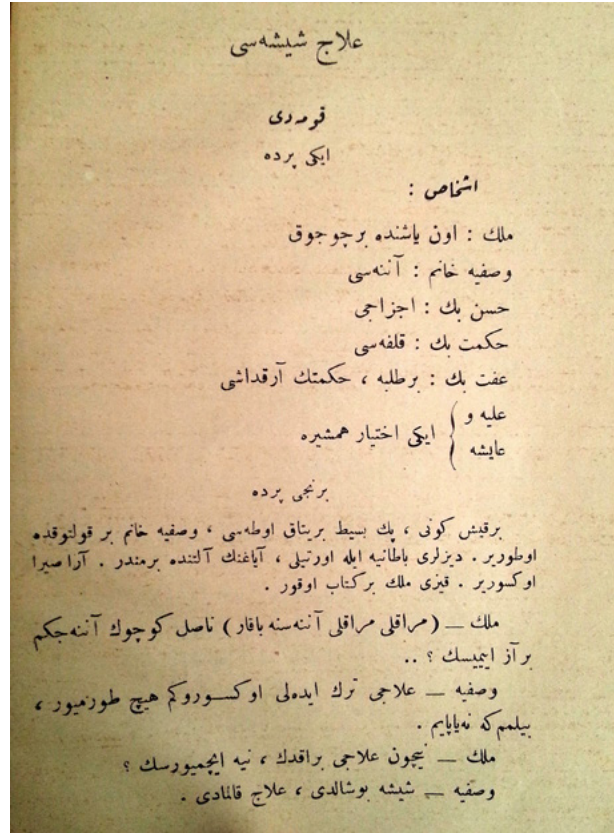 علاج شیشه‌سی
قومه‌دی
ایکی پرده
اشخاص :
ملك : اون یاشنده برچوجوق
وصفیه خانم : آننه‌سی
حسن بك : اجزاجی
حکمت بك : قلفه‌سی
عفت بك : برطلبه ، حکمتك آرقداشی
علیه و
عایشه } ایکی اختیار همشیره
برنجی پرده
برقیش کونی ، پك بسیط بریتاق اوطه‌سی ، وصفیه خانم بر قولتوقده
اوطوریر . دیزلری باطانیه ایله اورتیلی ، آیاغنك آلتنده برمندر . آرا صیرا
اوکسوریر . قیزی ملك برکتاب اوقور .
ملك — ( مراقلی مراقلی آننه‌سنه باقار ) ناصل کوچوك آننه‌جکم
بر آز اییمیسك ؟ ..
وصفیه — علاجی ترك ایده‌لی اوکسوروکم هیچ طورمیور ،
بیلمم که نه‌یاپایم .
ملك — نیچون علاجی براقدك ، نیه ایچمیورسك ؟
وصفیه — شیشه بوشالدی ، علاج قالمادی .